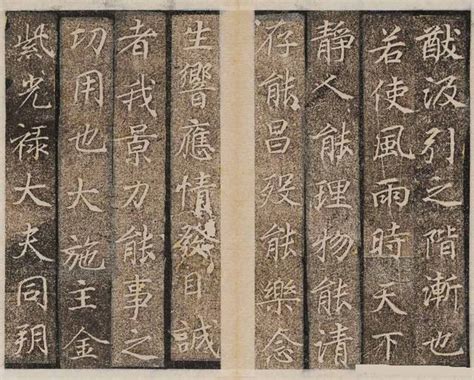 猷汲引之階漸也
若使風雨時天下
靜人能理物能清
存能昌歿能樂念
生響應情發自誠
者我景力能事之
切用也大施主金
紫光祿大夫同朔